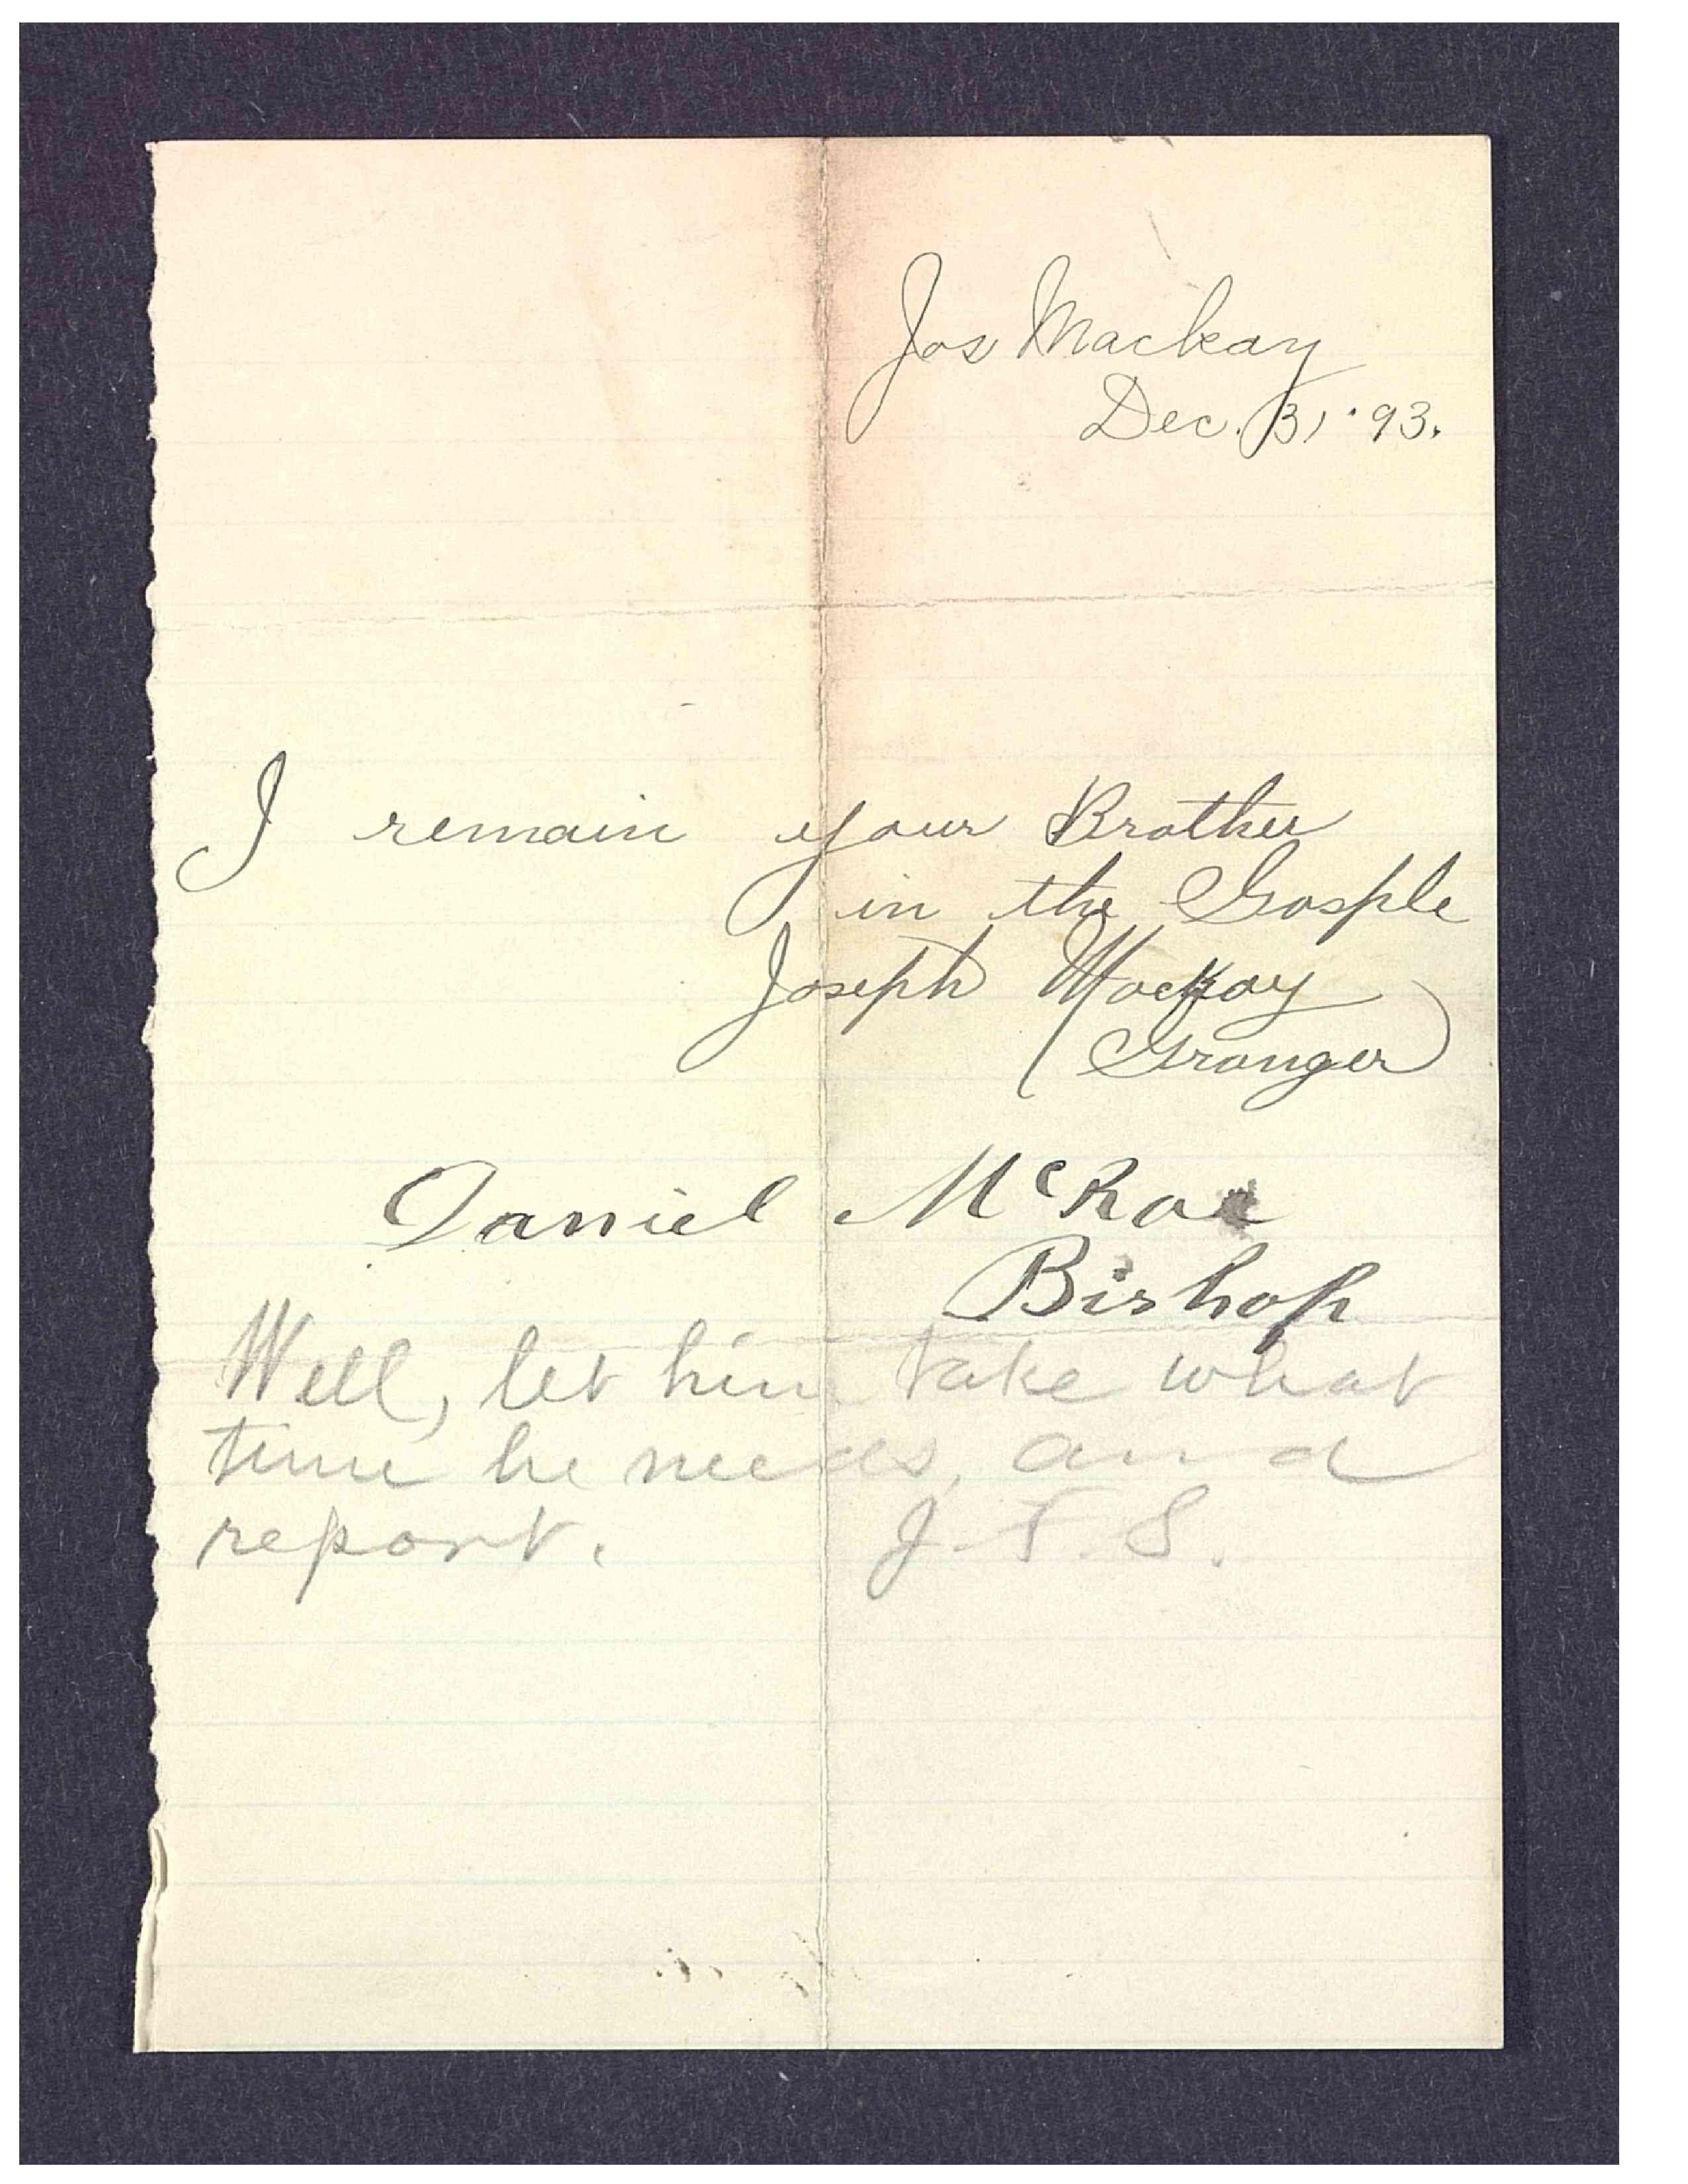 Jos Mackay
Dec. 31 '93.
I remain your Brother
in the Gosple
Joseph Mackay
(Granger)
Daniel McRae
Bishop
Well, let him take what
time he needs, and
report. J. F. S.